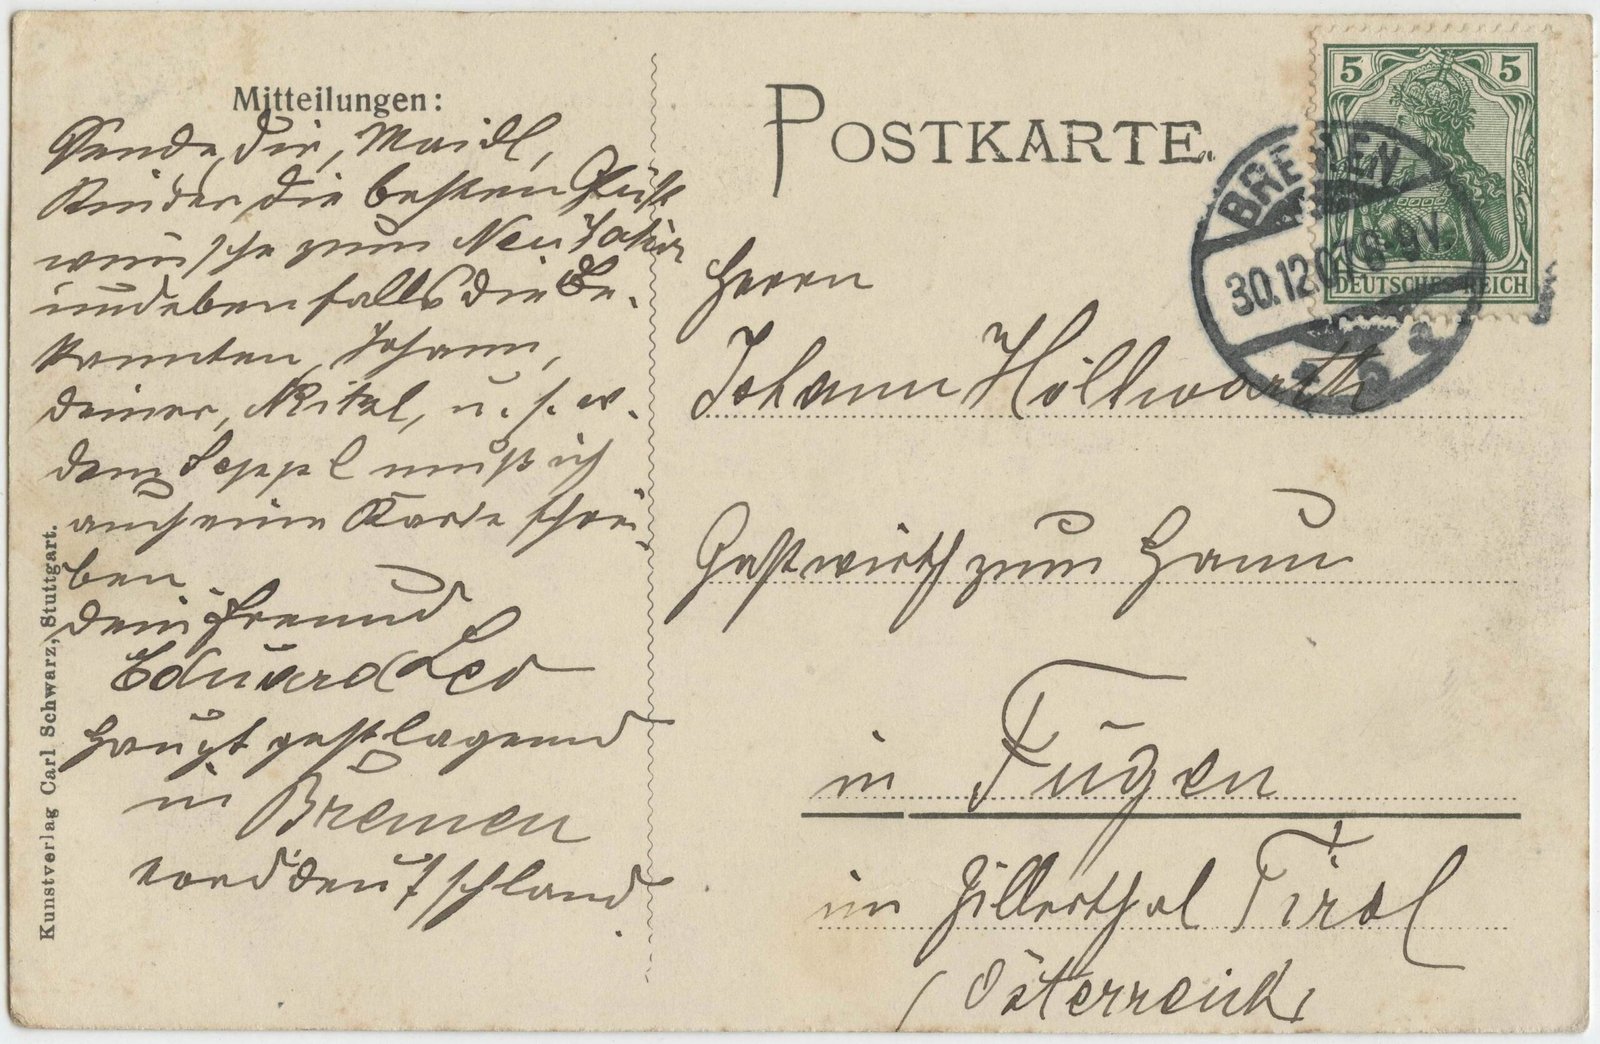 Mitteilungen:
Sende Dir, Maidl,
Kinder die besten Glück
wünsche zum Neu Jahr
und ebenfalls die Be-
kannten, Johann,
deiner, Nikel, u.s.w.
dem Seppl muß ich
auch eine Karte schrei-
ben
dein Freund
Eduard Leo
Hauptpostlagernd
in Bremen
norddeutschland.
Kunstverlag Carl Schwarz, Stuttgart.
POSTKARTE.
5 5
DEUTSCHES REICH
BREMEN
30.12.07.8-9V.
Herrn
Johann Höllwarth
Gastwirth zum Hann
in Fügen
im Zillerthal Tirol
(Österreich)